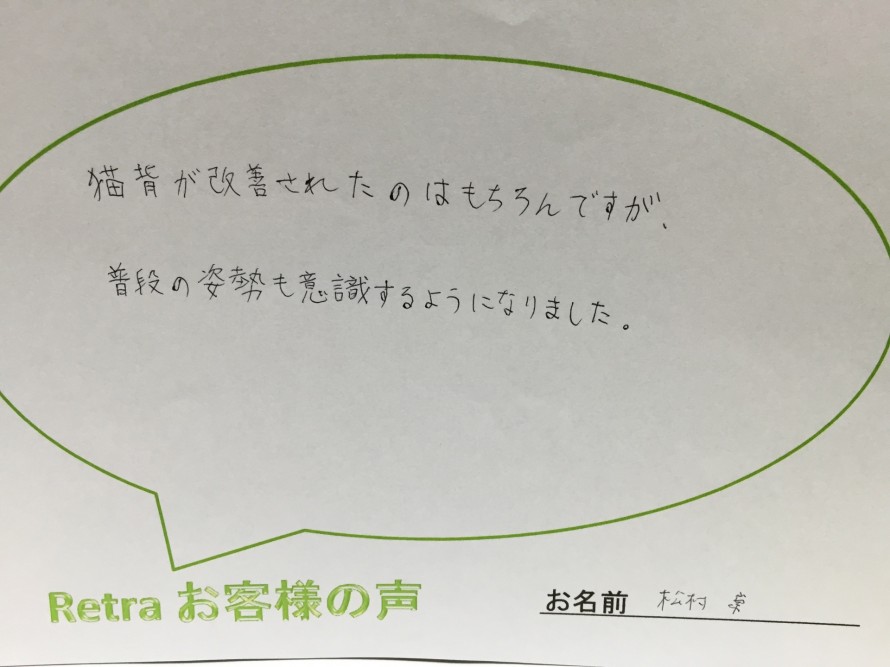 猫背が改善されたのはもちろんですが、
普段の姿勢も意識するようになりました。
Retra お客様の声
お名前 松村